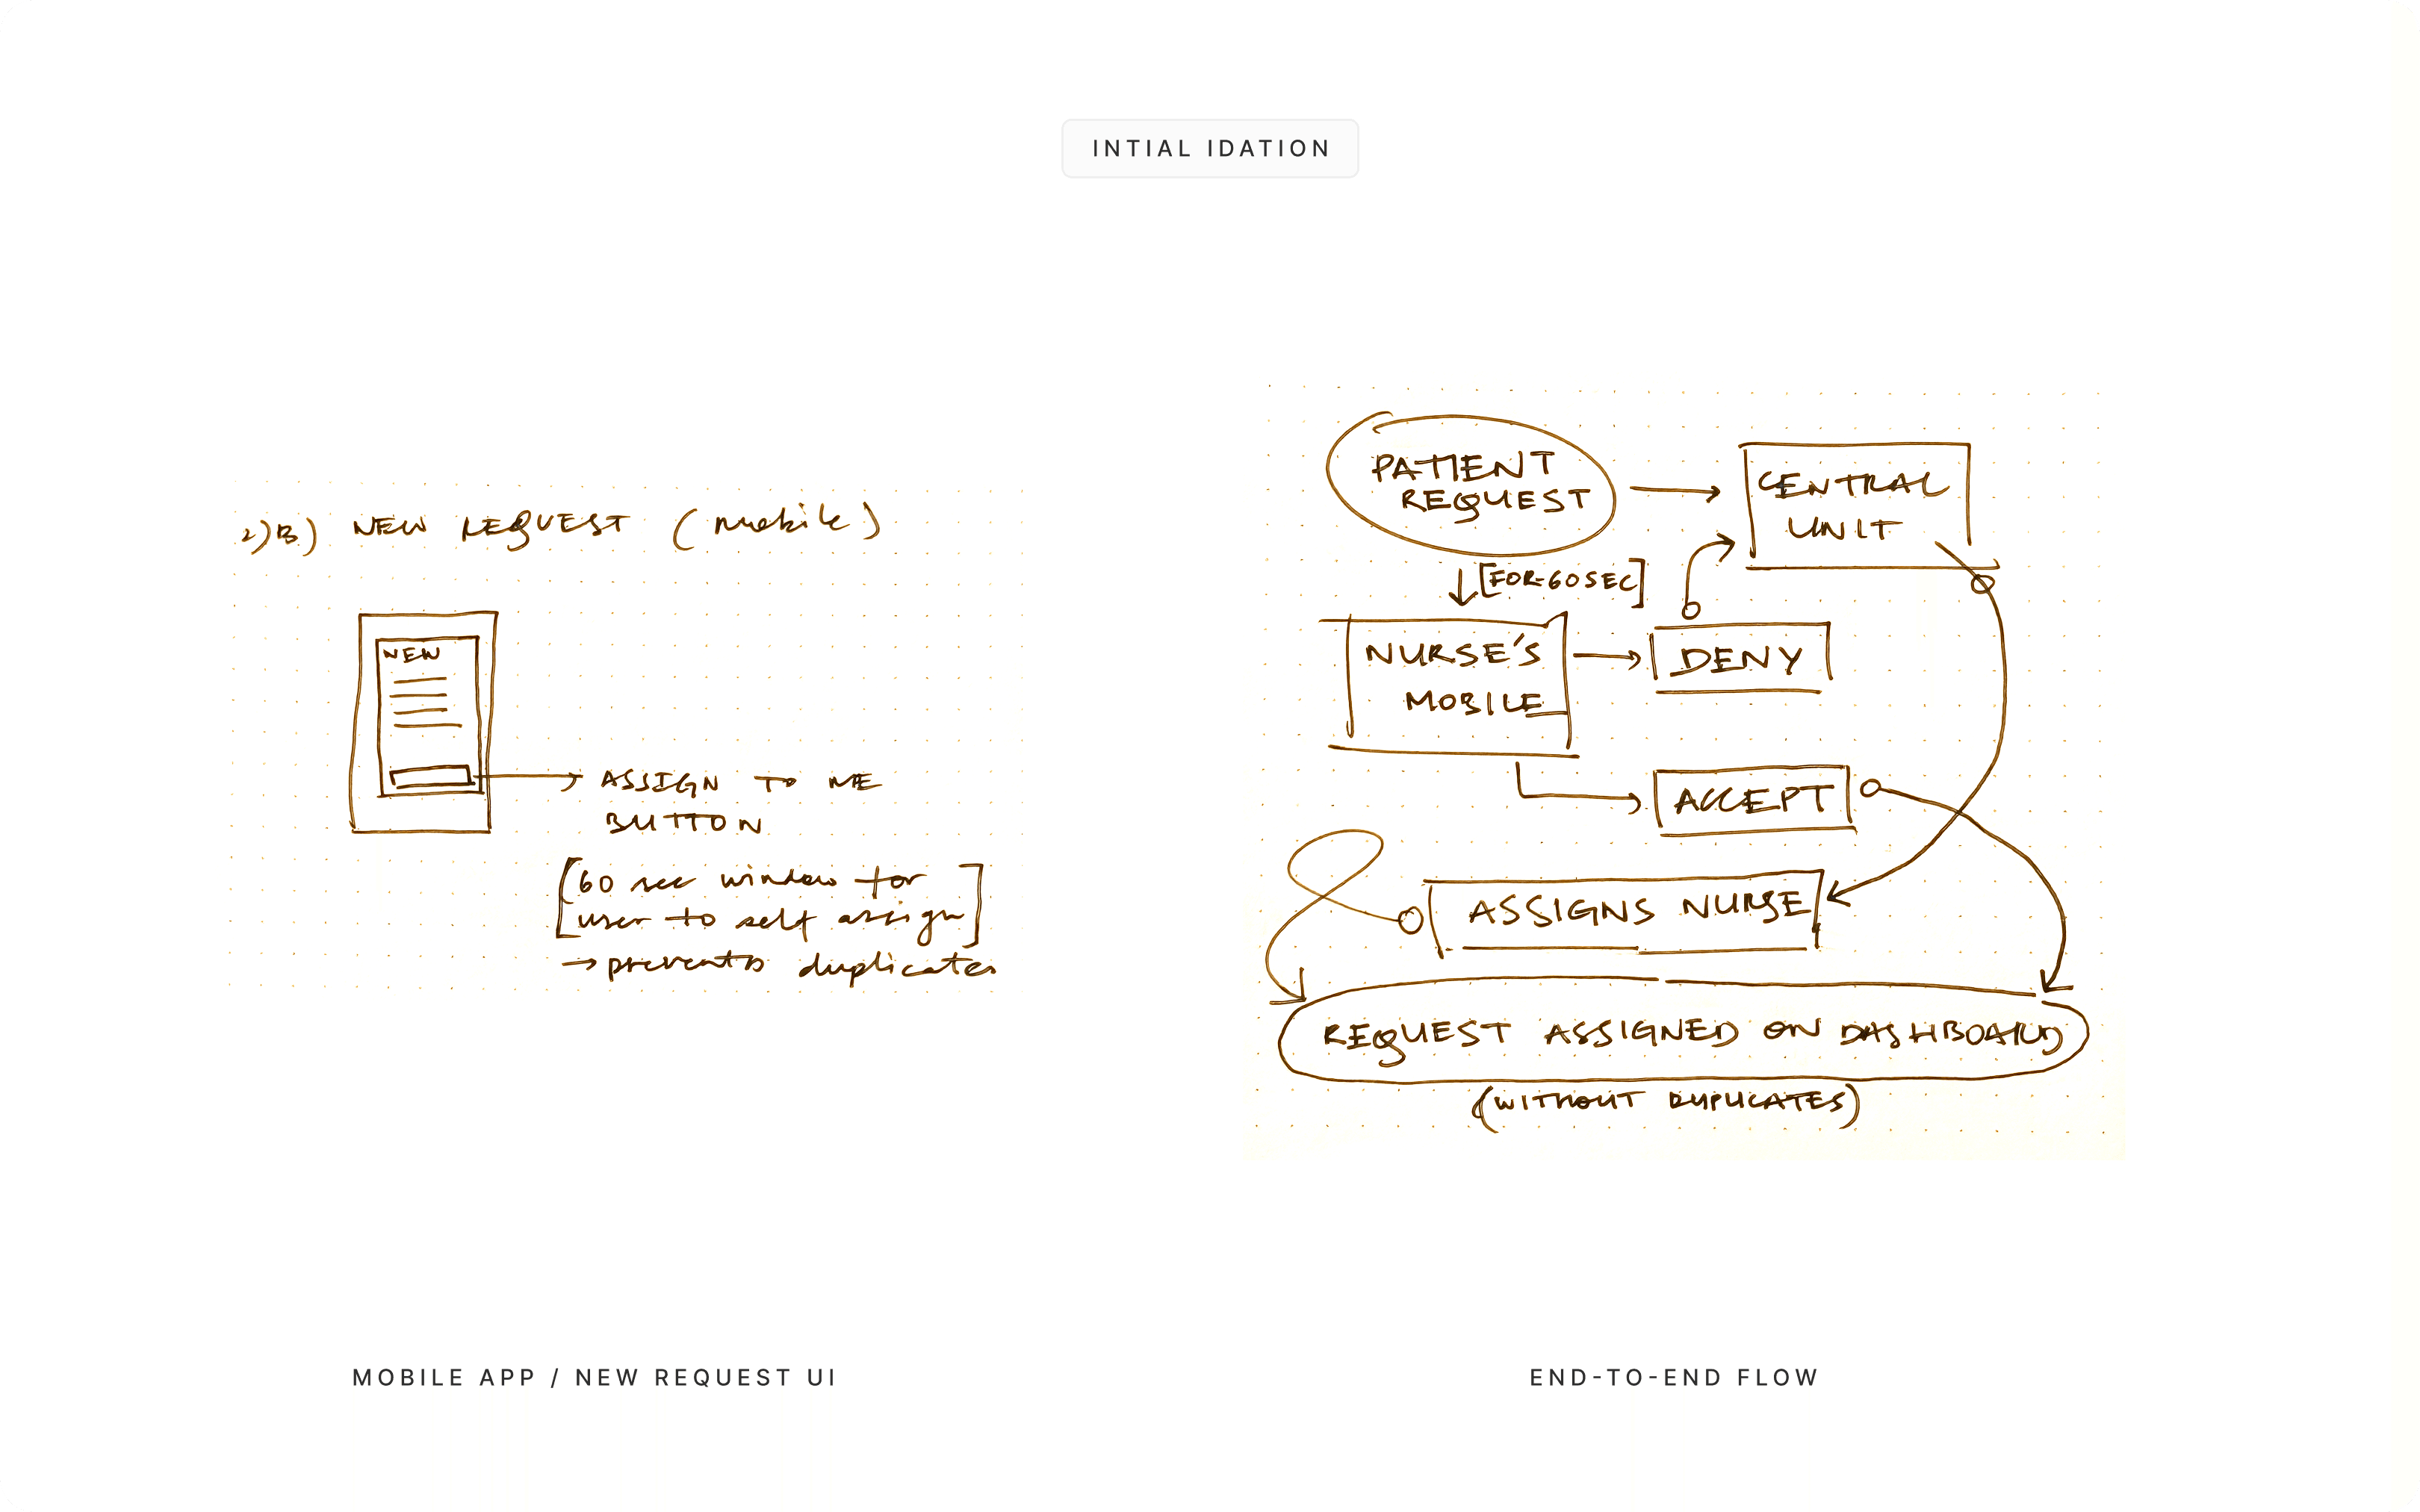 INTIAL IDATION
2)B) NEW REQUEST (mobile)
NEW
ASSIGN TO ME
BUTTON
[60 sec window for
user to self assign]
→ prevents duplicates
PATIENT
REQUEST
CENTRAL
UNIT
[FOR-60SEC]
NURSE'S
MOBILE
DENY
ACCEPT
ASSIGNS NURSE
REQUEST ASSIGNED ON DASHBOARD
(WITHOUT DUPLICATES)
MOBILE APP / NEW REQUEST UI
END-TO-END FLOW